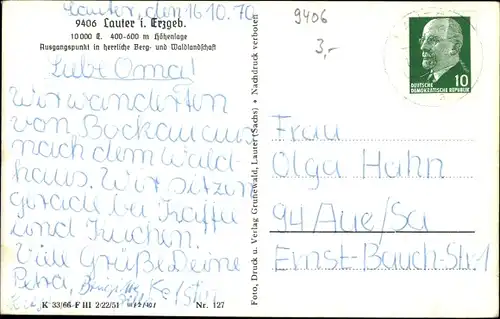 Lauter, den 16.10.70
9406 Lauter i. Erzgeb.
10 000 E. 400-600 m Höhenlage
Ausgangspunkt in herrliche Berg- und Waldlandschaft
Liebe Oma!
Wir wanderten
von Bockau aus
nach dem Wald-
haus. Wir sitzen
gerade bei Kaffee
und Kuchen.
Viele Grüße Deine
Petra,
K 33/66-F III 2/22/51
Nr. 127
Foto, Druck u. Verlag Grunewald, Lauter (Sachs) • Nachdruck verboten
9406
3,-
10
DEUTSCHE
DEMOKRATISCHE REPUBLIK
Frau
Olga Hahn
94 Aue/Sa
Ernst-Bauch-Str. 1